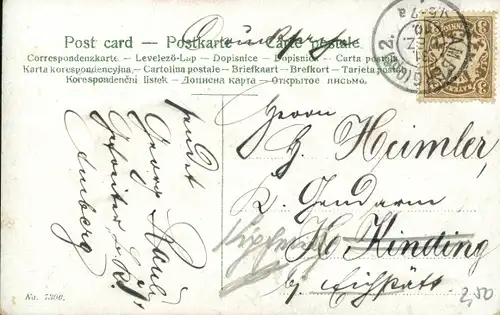 Post card — Postkarte — Carte postale
Drucksache
Correspondenzkarte — Levelező-Lap — Dopisnice — Dopisnica — Carta postala
Karta korespondencyjna — Cartolina postale — Briefkaart — Brefkort — Tarjeta postal
Korespondenční lístek — Дописна карта — Открытое письмо.
Herrn
H. Heimler,
K. Gendarm
Kipfenberg
Kinding
b/ Eichstätt.
sendt
Georg
Gefreiter
Amberg
No. 7300.
2,50